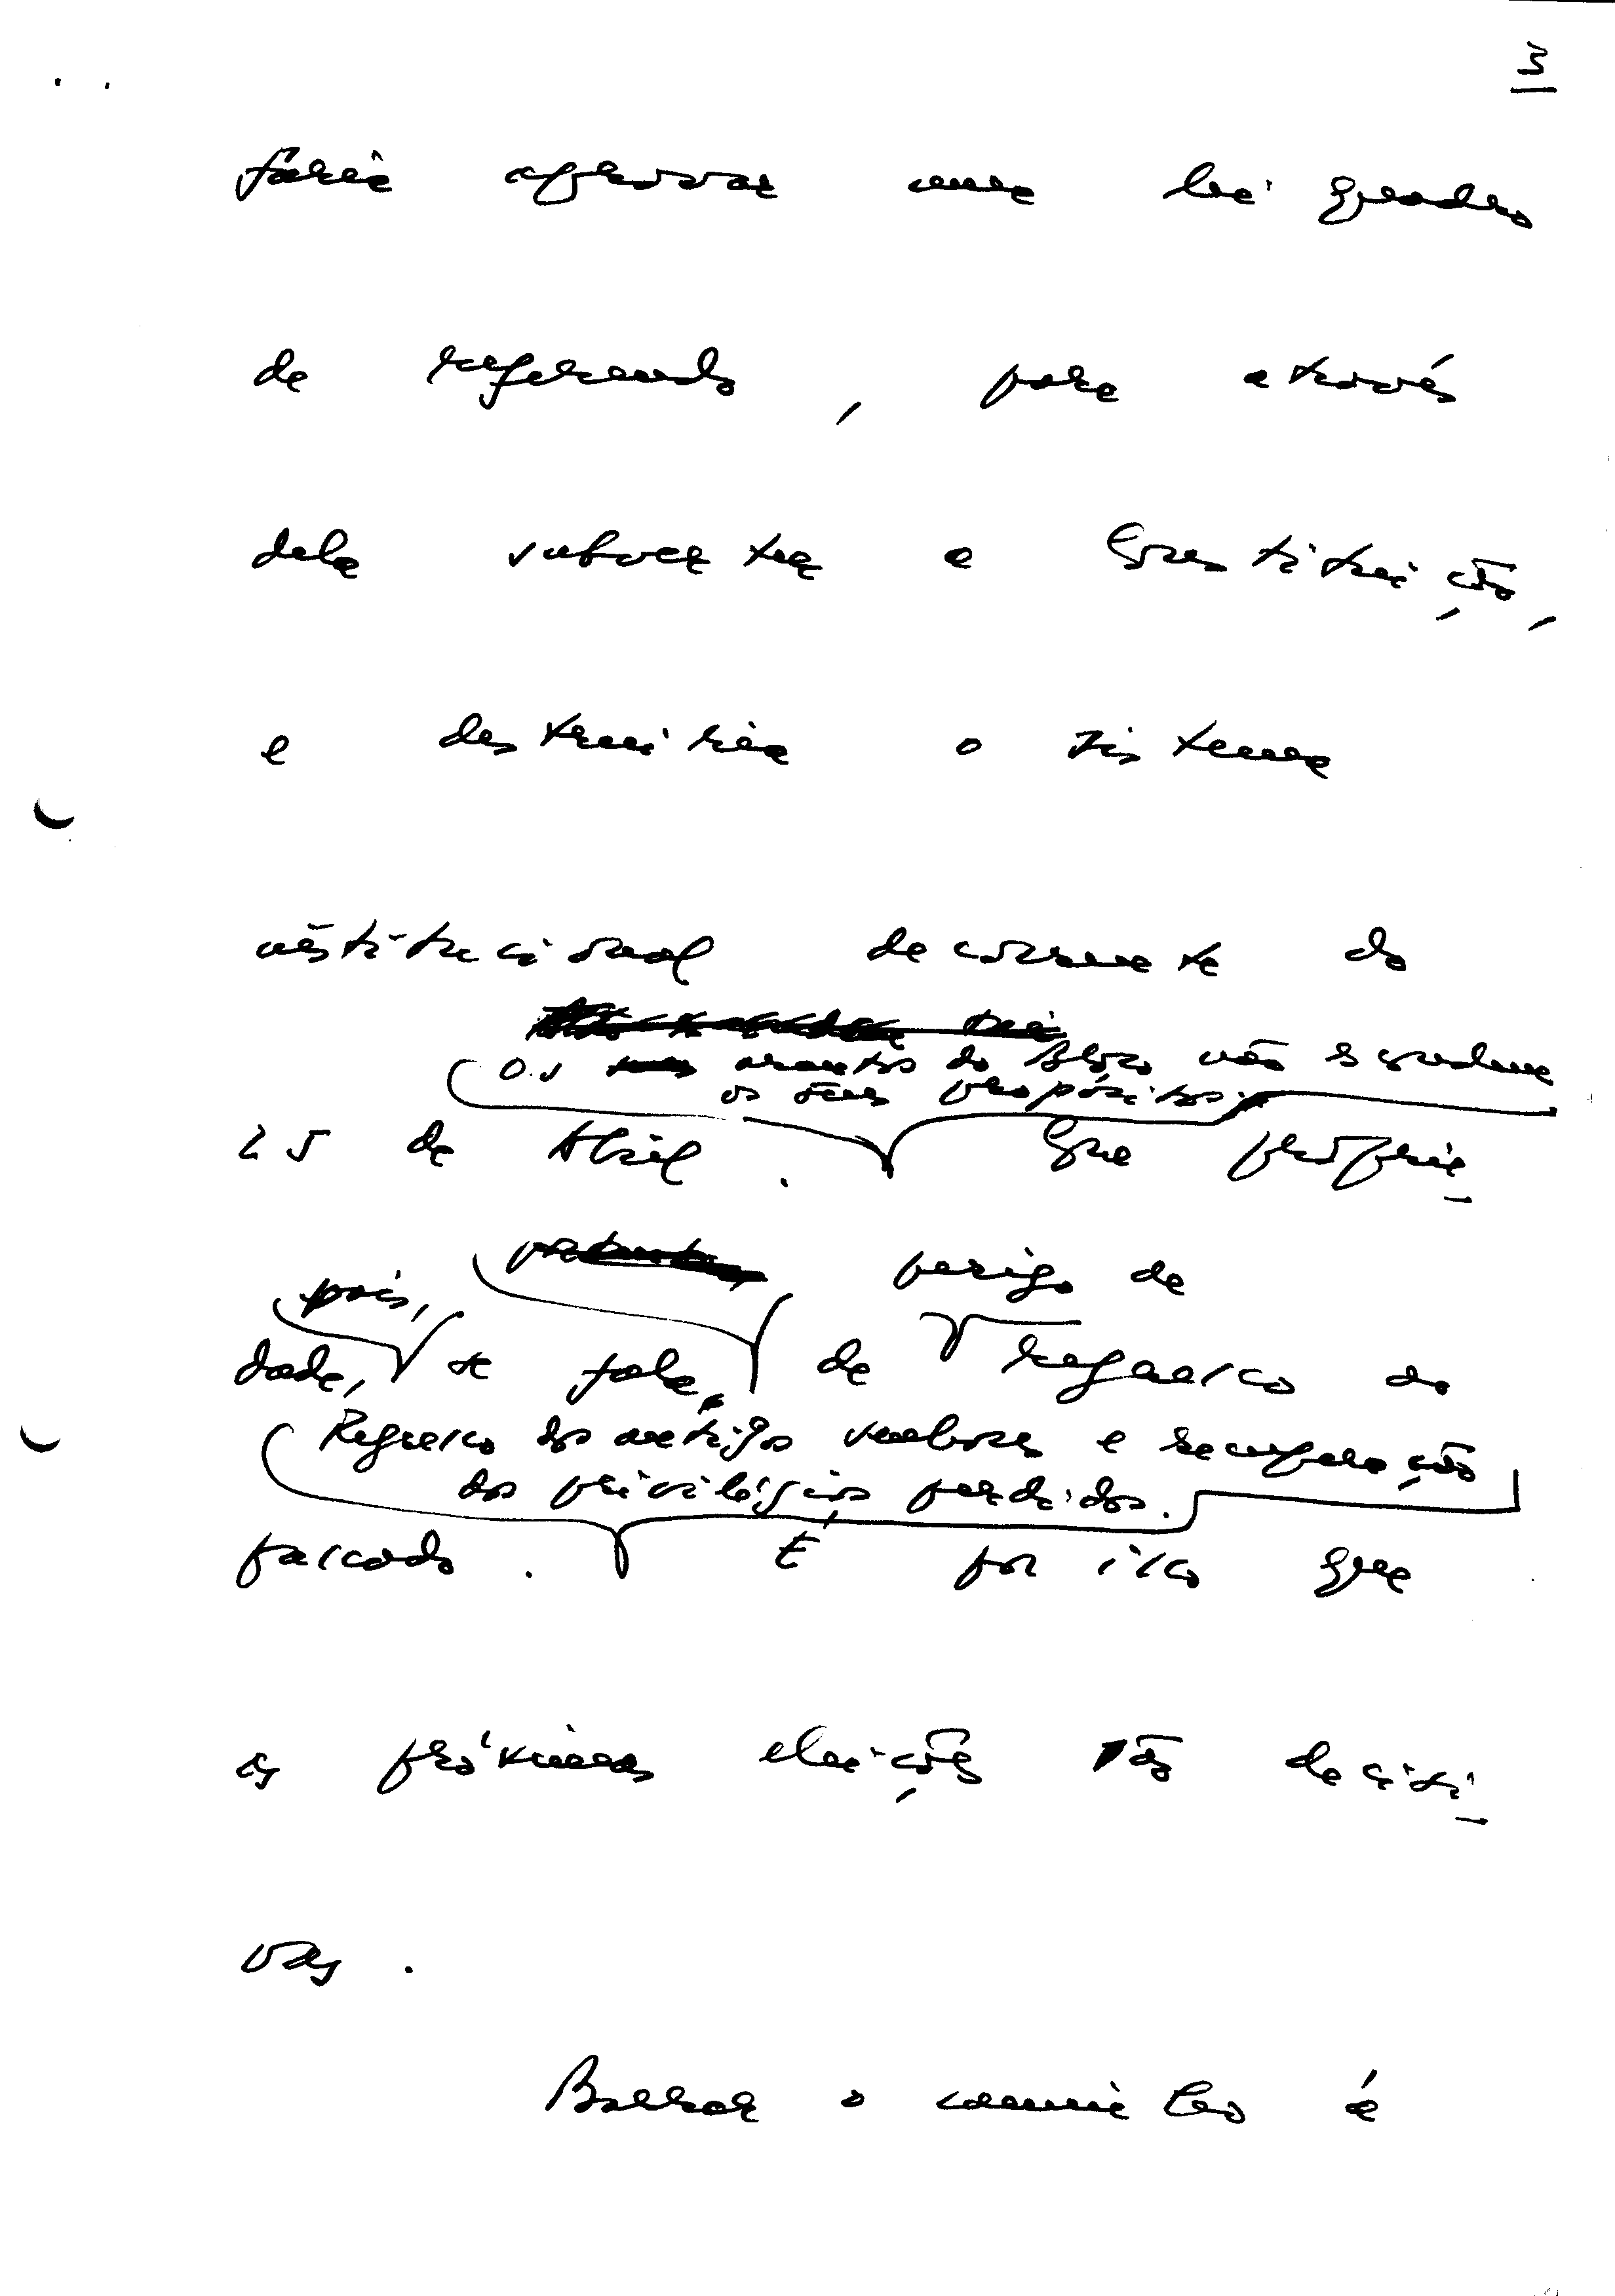 3
faria aprovar uma lei quadro
de referendo, para através
dela subverter a Constituição,
e destruiria o sistema
institucional decorrente do
Os arautos do Bloco não escondem
os seus propósitos.
25 de Abril. Com proprie-
perigo de
pois,
dade, se fala, de regresso ao
Regresso dos antigos senhores e recuperação
dos privilégios perdidos.
passado. É por isso que
as próximas eleições são decisi-
vas.
Barrar o caminho à